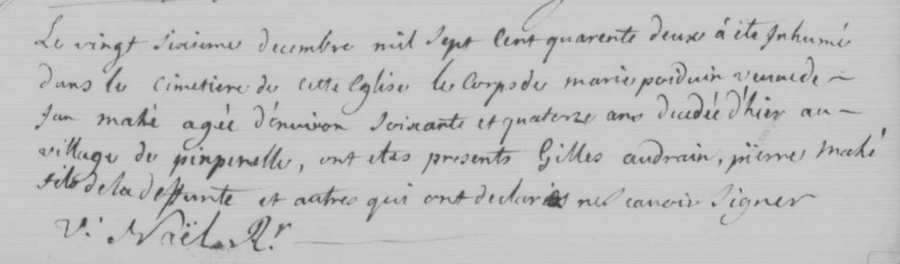 Le vingt sixieme decembre mil sept cent quarente deux á éte Inhumé
dans le cimetiere de cette Eglise le Corps de marie poiduin veuve de ~
Jan mahé agée d'environ soixante et quatorze ans decedée d'hier au ~
village de pinpenelle, ont etes presents Gilles audrain, pierre Mahé
fils de la deffunte et autres qui ont declarés ne scavoir signer
V. Noël Rr